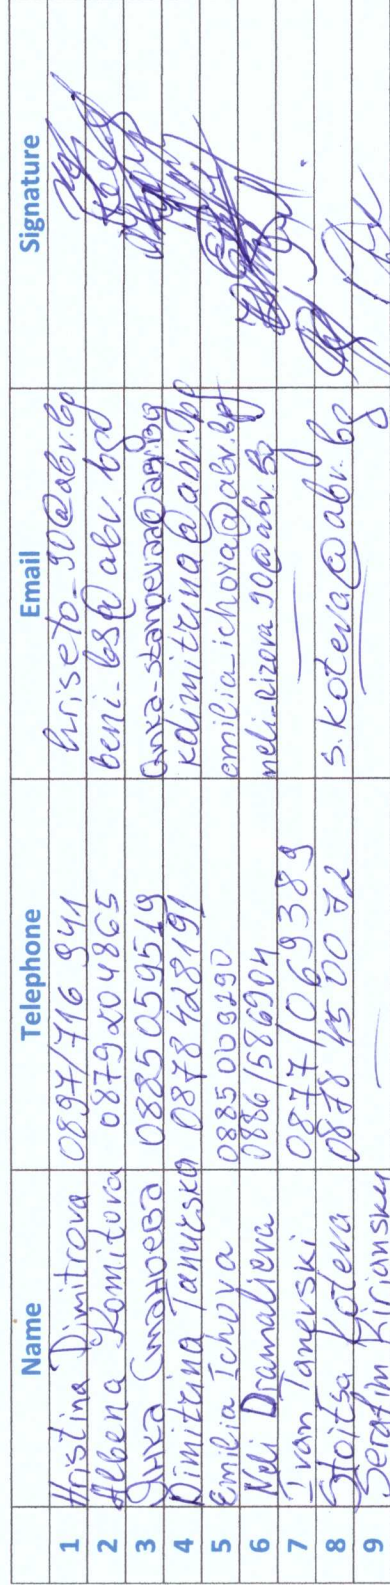 Name Telephone Email Signature
1 Hristina Dimitrova 0897/716 941 hriseto_90@abv.bg
2 Albena Komitova 0879204865 beni_bs@abv.bg
3 Янка Станоева 0885059519
4 Dimitrina 0878428191 kdimitrina@abv.bg
5 Emilia Ichova emilia_ichova@abv.bg
6 Neli Dramalieva 0886/586904
7 Ivan Tanevski 0877/069389
8 Stoitsa Koteva 0878 45 00 72 s.koteva@abv.bg
9 Serafim Kirianski